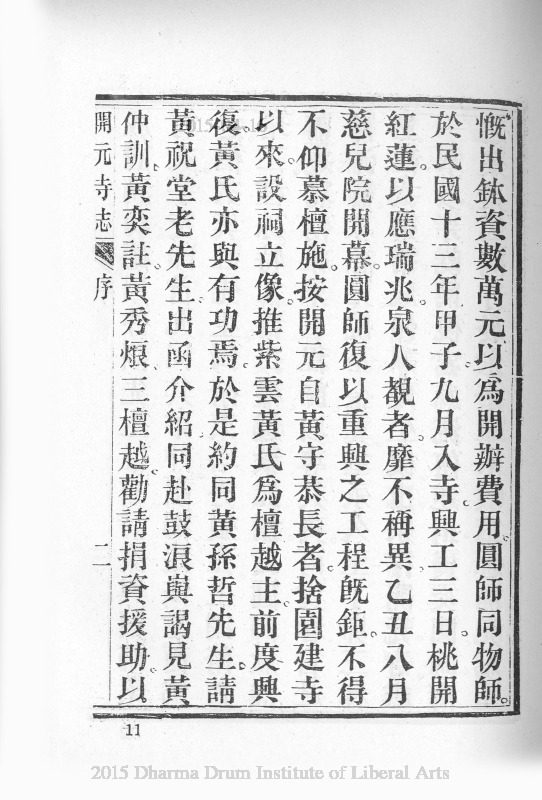 慨出鉢資數萬元以爲開辦費用。圓師同物師。
於民國十三年甲子九月入寺。興工三日。桃開
紅蓮。以應瑞兆。泉人覩者。靡不稱異。乙丑八月
慈兒院開幕。圓師復以重興之工程旣鉅。不得
不仰慕檀施。按開元自黃守恭長者。捨園建寺
以來。設祠立像。推紫雲黃氏爲檀越主。前度興
復。黃氏亦與有功焉。於是約同黃孫哲先生。請
黃祝堂老先生。出函介紹。同赴鼓浪嶼。謁見黃
仲訓、黃奕註、黃秀烺、三檀越。勸請捐資援助。以
開元寺志 序 二
11
2015 Dharma Drum Institute of Liberal Arts